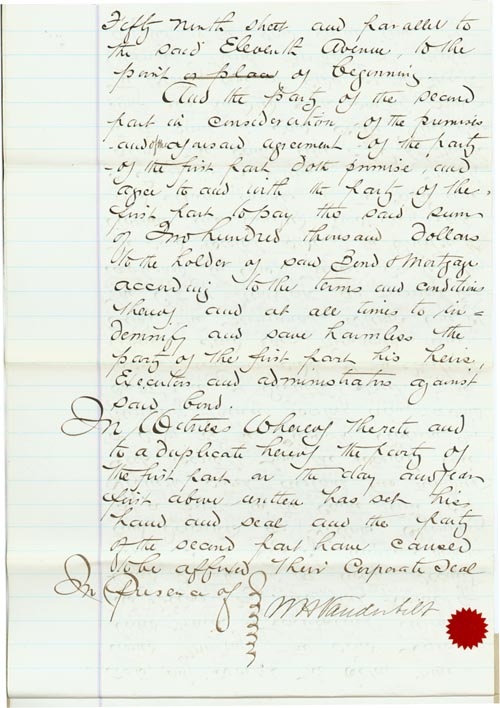 Fifty ninth street and parallel to
the said Eleventh Avenue, to the
point or place of beginning.
And the party of the second
part in consideration of the premises
and of the aforesaid agreement of the party
of the first part doth promise, and
agree to and with the party of the
first part to pay the said sum
of Two hundred thousand Dollars
to the holder of said Bond & Mortgage
according to the terms and conditions
thereof and at all times to in=
demnify and save harmless the
party of the first part his heirs,
Executors and administrators against
said bond.
In Witness Whereof thereto and
to a duplicate hereof the party of
the first part on the day and year
first above written has set his
hand and seal and the party
of the second part have caused
to be affixed their Corporate Seal
In Presence of
WHVanderbilt